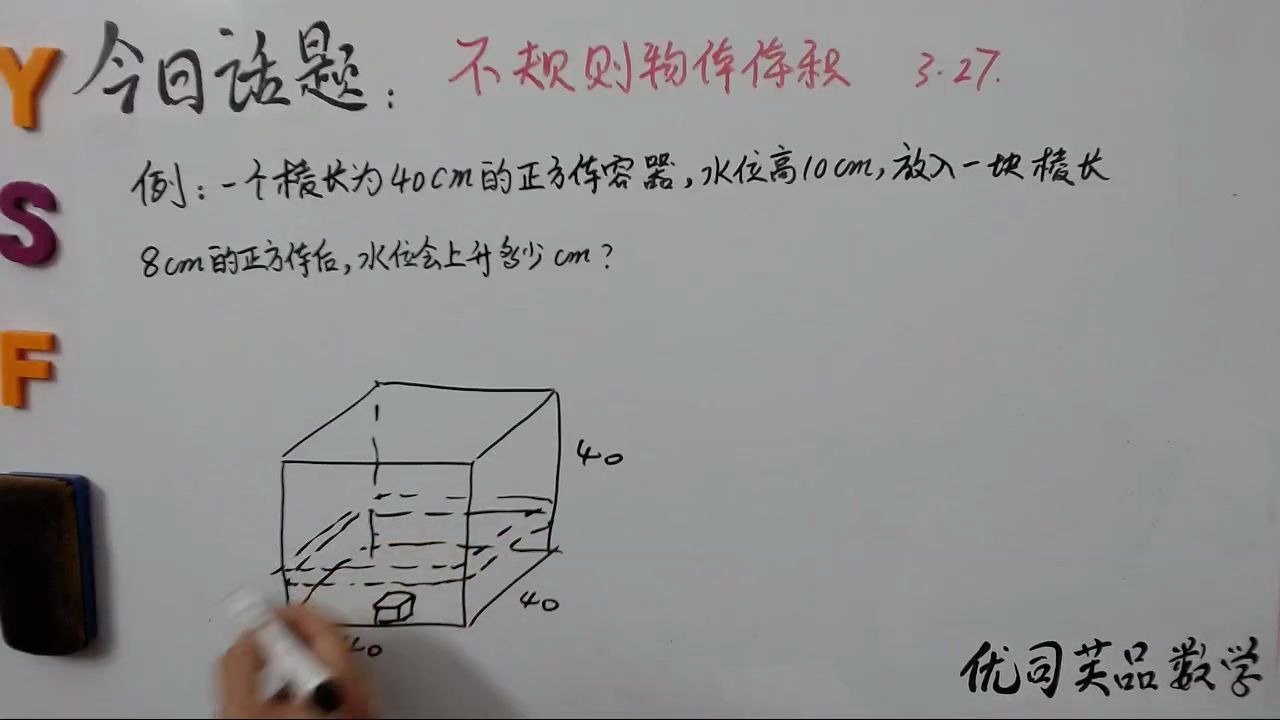 今日话题：不规则物体体积 3.27.
例：一个棱长为40cm的正方体容器，水位高10cm，放入一块棱长
8cm的正方体后，水位会上升多少cm？
Y
S
F
40
40
40
优司英品数学